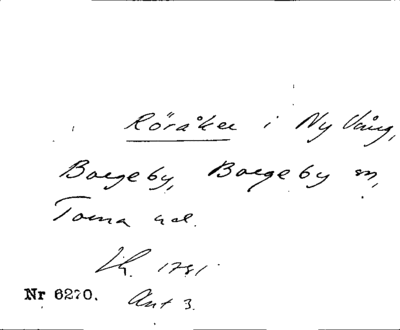 Röråker i Ny Vång,
Borgeby, Borgeby sn,
Torna hd.
Lh. 1781
Nr 6270. Akt 3.